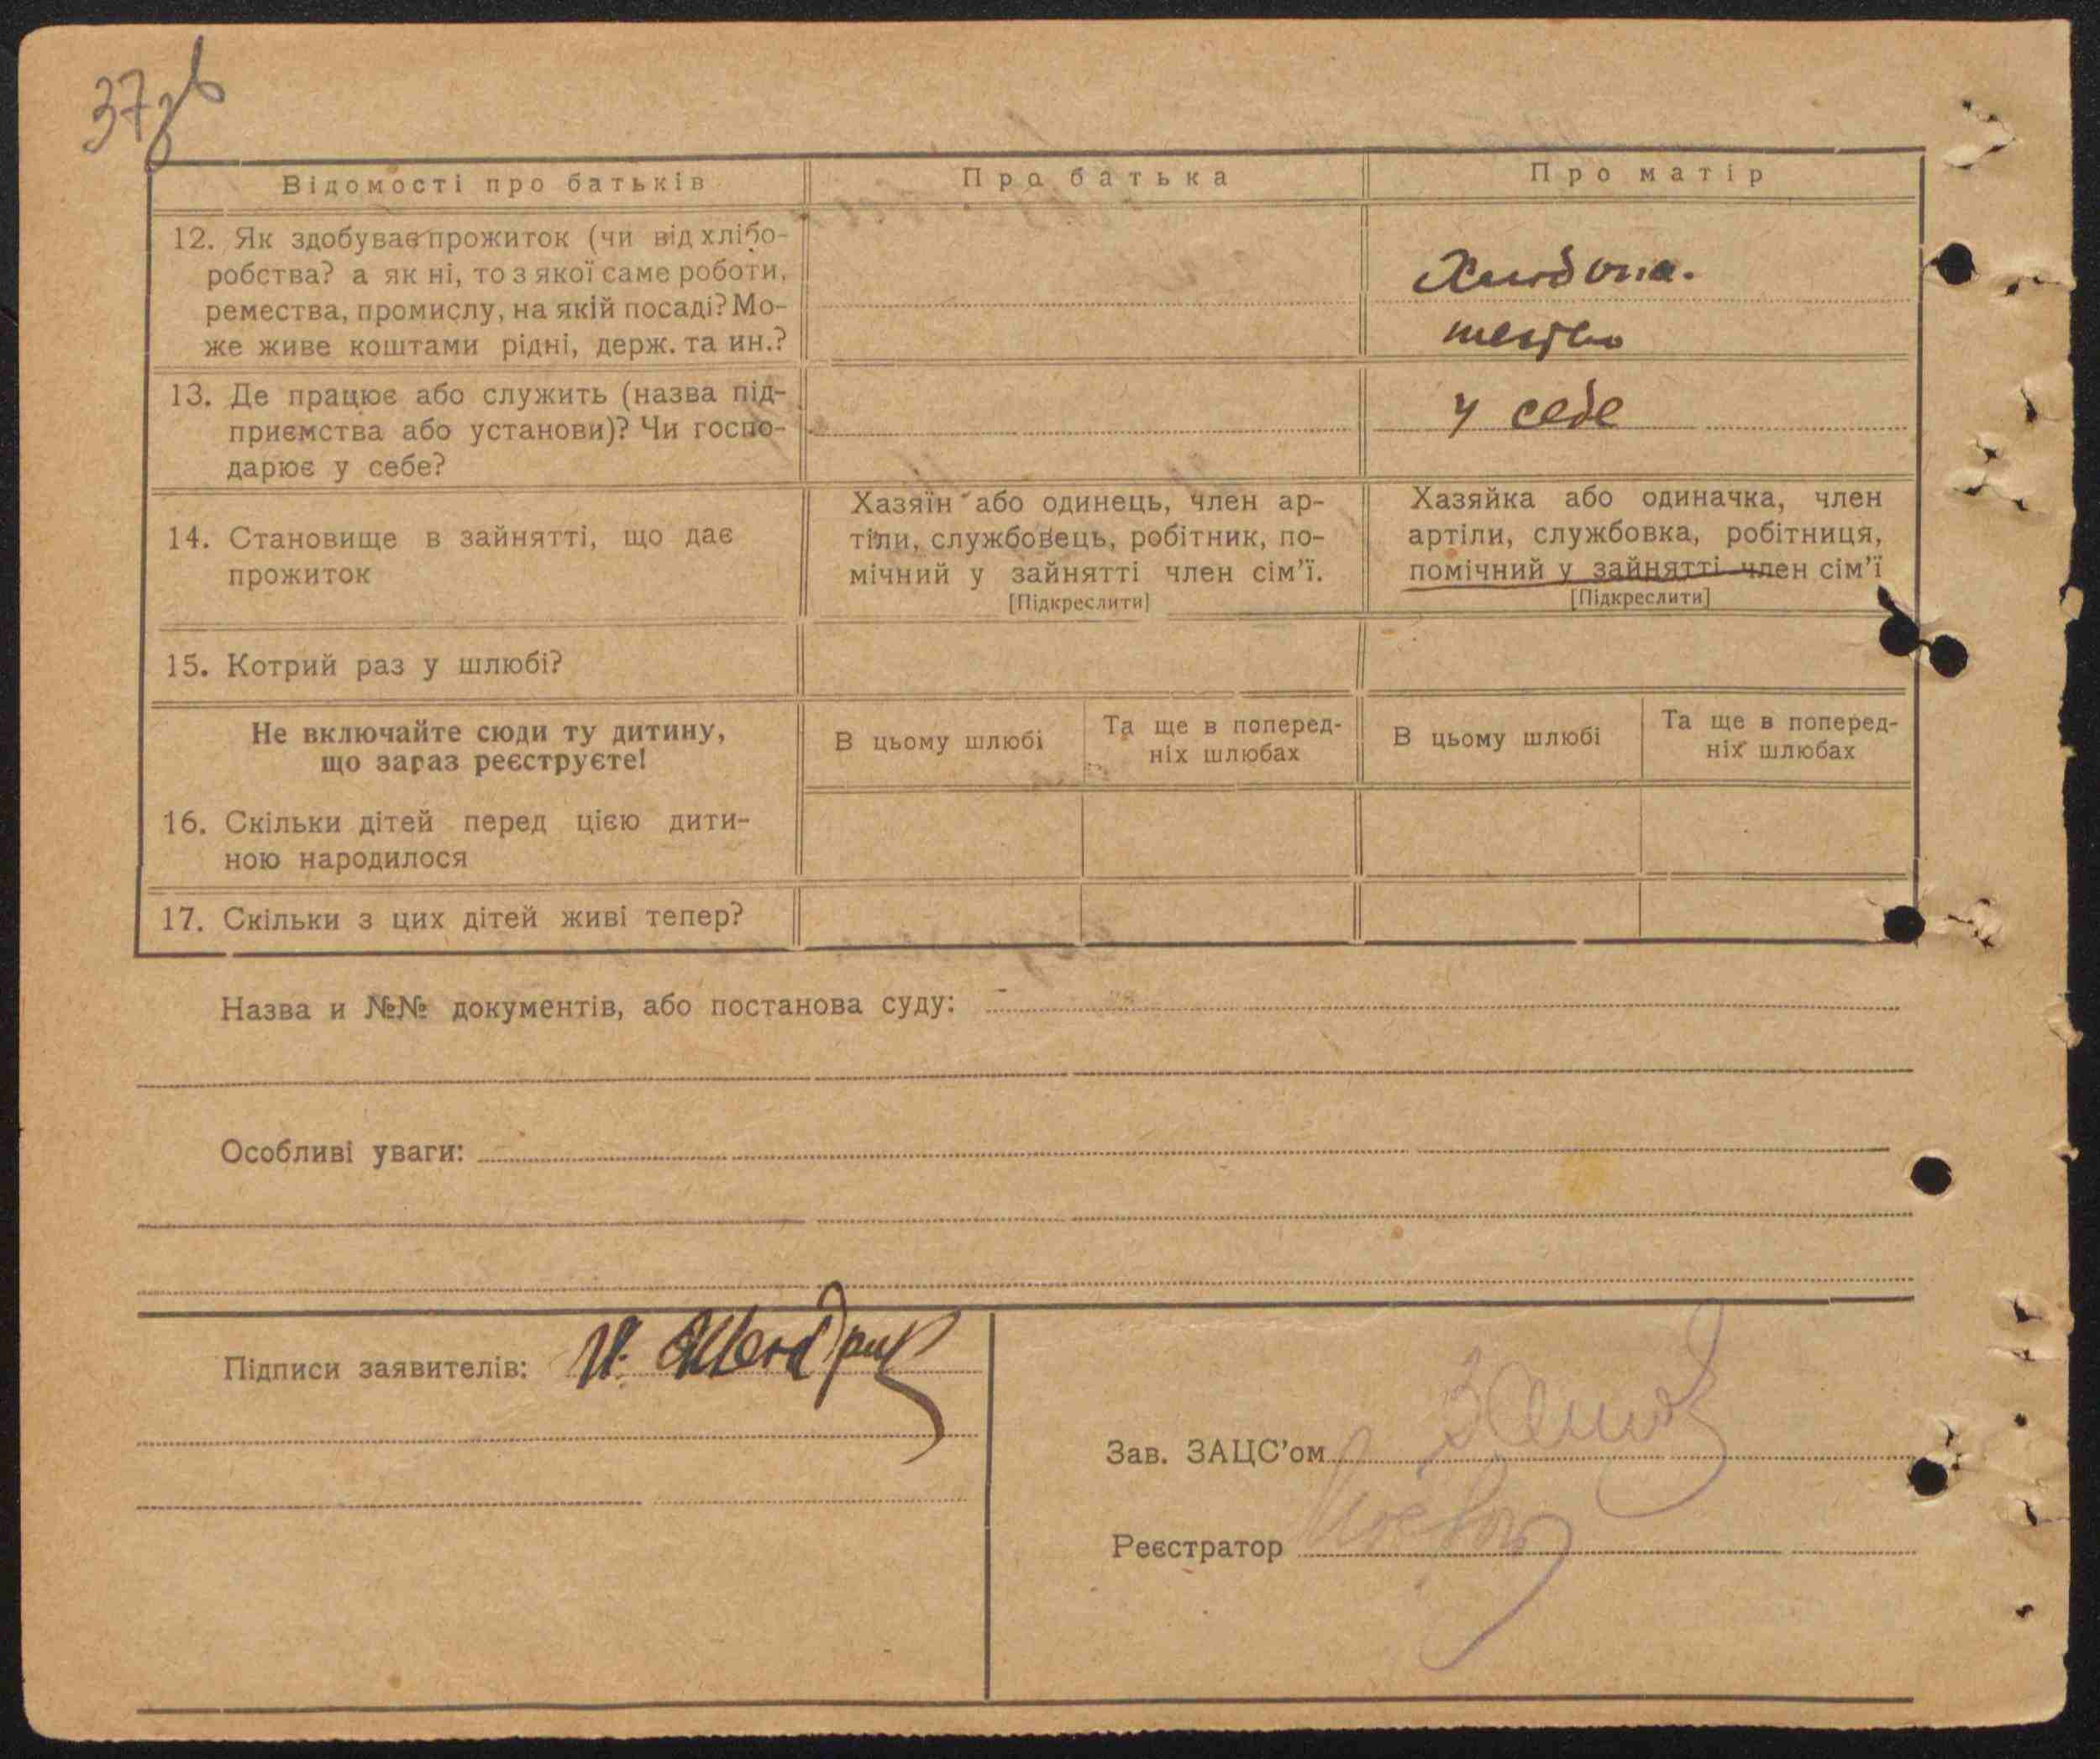 37зв
Відомості про батьків
Про батька
Про матір
12. Як здобуває прожиток (чи від хлібо-
робства? а як ні, то з якої саме роботи,
ремества, промислу, на якій посаді? Мо-
же живе коштами рідні, держ. та ин.?
13. Де працює або служить (назва під-
приємства або установи)? Чи госпо-
дарює у себе?
у себе
14. Становище в зайнятті, що дає
прожиток
Хазяїн або одинець, член ар-
тіли, службовець, робітник, по-
мічний у зайнятті член сім’ї.
[Підкреслити]
Хазяйка або одиначка, член
артіли, службовка, робітниця,
помічний у зайнятті член сім’ї
[Підкреслити]
15. Котрий раз у шлюбі?
Не включайте сюди ту дитину,
що зараз реєструєте!
В цьому шлюбі
Та ще в поперед-
ніх шлюбах
В цьому шлюбі
Та ще в поперед-
ніх шлюбах
16. Скільки дітей перед цією дити-
ною народилося
17. Скільки з цих дітей живі тепер?
Назва и №№ документів, або постанова суду:
Особливі уваги:
Підписи заявителів:
Зав. ЗАЦС’ом
Реєстратор